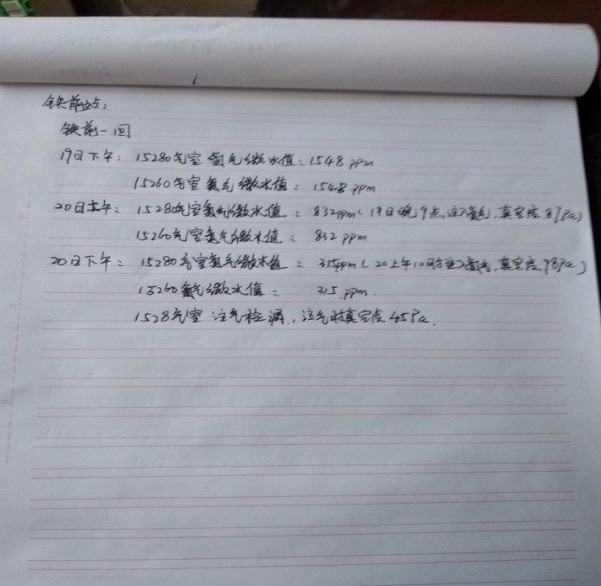 铁前站:
铁前一回
19日下午: 15280气室氮气微水值: 1548 ppm
15260气室氮气微水值: 1548 ppm
20日上午: 15280气室氮气微水值: 832ppm (19日晚9点注入氮气,真空度87Pa)
15260气室氮气微水值: 832 ppm
20日下午: 15280气室氮气微水值: 315ppm (20上午10时注入氮气,真空度 Pa)
15260氮气微水值: 315 ppm.
1528气室 注气检漏, 注气时真空度 45Pa.